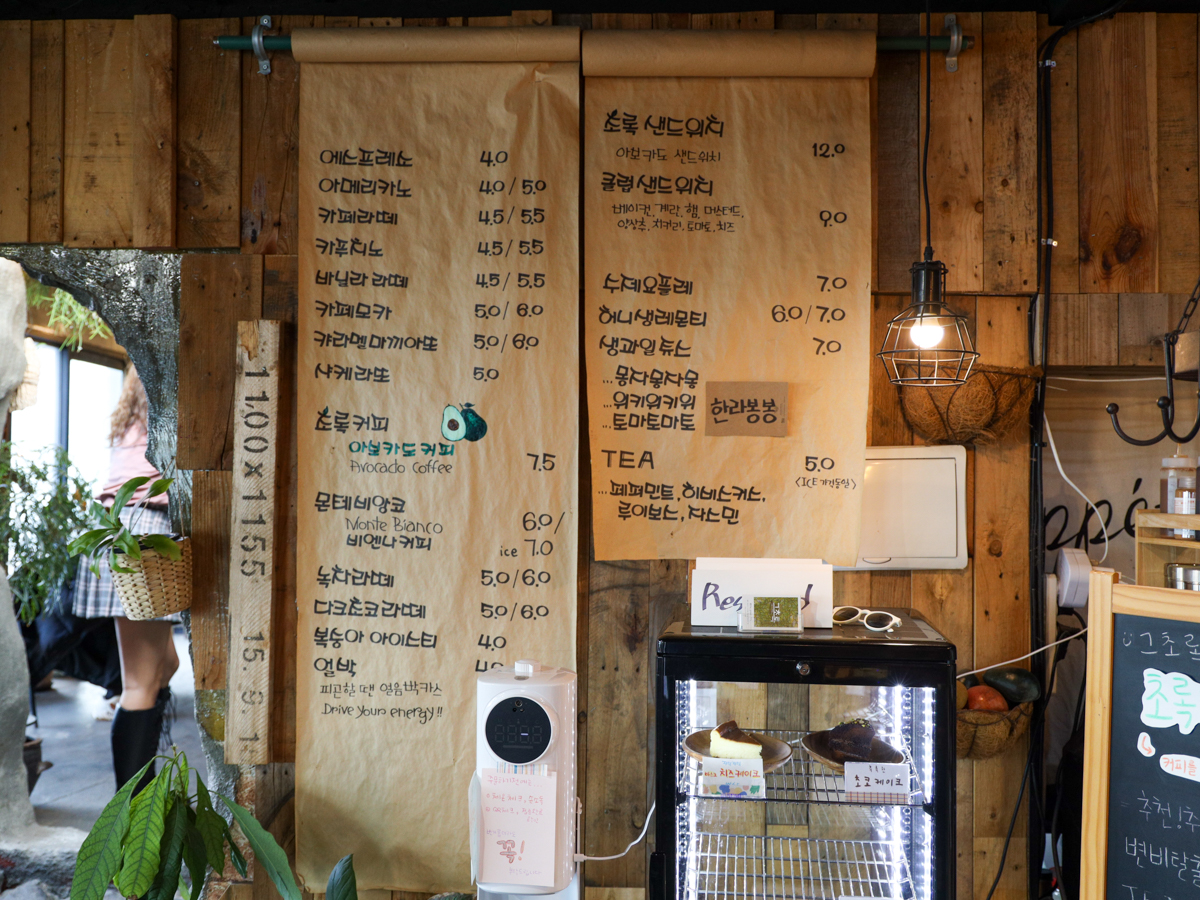 에스프레쏘 4.0
아메리카노 4.0 / 5.0
카페라떼 4.5 / 5.5
카푸치노 4.5 / 5.5
바닐라 라떼 4.5 / 5.5
카페모카 5.0 / 6.0
캬라멜 마끼아또 5.0 / 6.0
샤케라또 5.0
초록커피
아보카도 커피
Avocado Coffee 7.5
몬테비앙코
Monte Bianco 6.0 /
비엔나커피 ice 7.0
녹차라떼 5.0 / 6.0
다크초코라떼 5.0 / 6.0
복숭아 아이스티 4.0
얼박
피곤할 땐 얼음박카스
Drive your energy!!
초록 샌드위치
아보카도 샌드위치 12.0
클럽 샌드위치
베이컨, 계란, 햄, 머스터드,
양상추, 치커리, 토마토, 치즈 9.0
수제요플레 7.0
허니생레몬티 6.0 / 7.0
생과일쥬스 7.0
...몽자몽자몽
...위키위키위
...토마토마토
한라봉봉
TEA 5.0
<ICE 가격동일>
...페퍼민트, 히비스커스,
루이보스, 자스민
1100x1155 15.6.1
치즈케이크
초코케이크
꼭!
ppé
그초록
초록
커피를
추천!
변비탈출